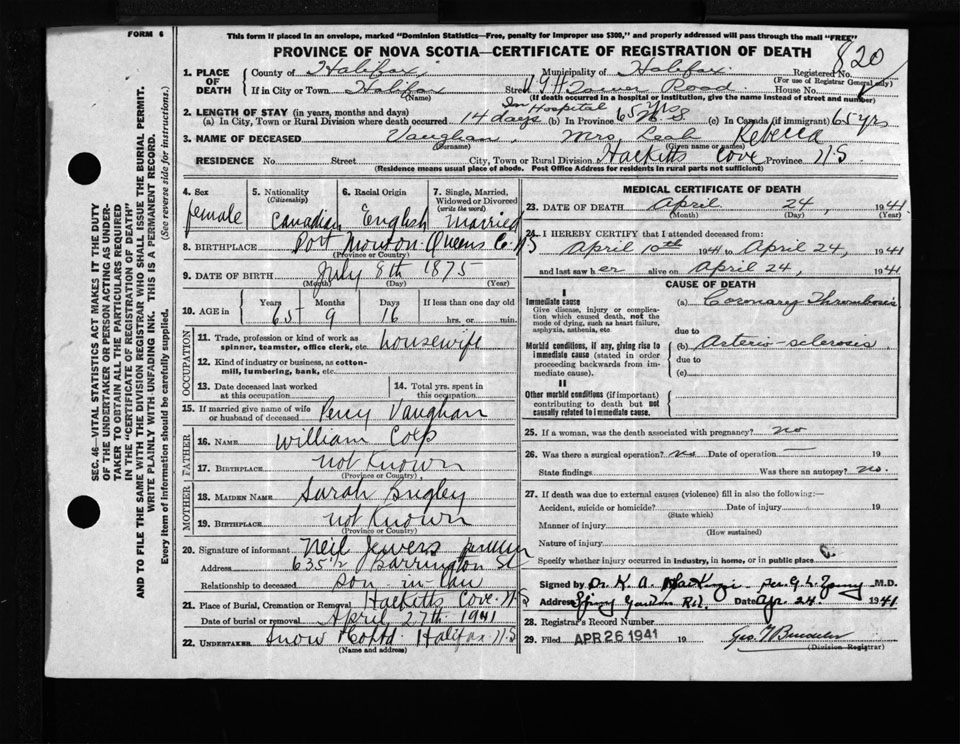 FORM 6
This form if placed in an envelope, marked "Dominion Statistics—Free, penalty for improper use $300," and properly addressed will pass through the mail "FREE"
PROVINCE OF NOVA SCOTIA—CERTIFICATE OF REGISTRATION OF DEATH
820
1. PLACE OF DEATH
County of Halifax Municipality of Halifax Registered No.
(For use of Registrar General only)
If in City or Town Halifax Street V.G.H. Tower Road House No.
(Name) (If death occurred in a hospital or institution, give the name instead of street and number)
2. LENGTH OF STAY (in years, months and days)
In Hospital
(a) In City, Town or Rural Division where death occurred 14 days (b) In Province 65 yrs N S (c) In Canada (if immigrant) 65 yrs
3. NAME OF DECEASED Vaughan, Mrs Leah Rebecca
(Surname) (Given name or names)
RESIDENCE No. Street City, Town or Rural Division Hacketts Cove Province N.S
(Residence means usual place of abode. Post Office Address for residents in rural parts not sufficient)
4. Sex
female
5. Nationality
(Citizenship)
Canadian
6. Racial Origin
English
7. Single, Married, Widowed or Divorced
(write the word)
Married
8. BIRTHPLACE Port Mouton Queens Co NS
(Province or Country)
9. DATE OF BIRTH July 8th 1875
(Month) (Day) (Year)
10. AGE in
Years Months Days If less than one day old
65 9 16 hrs. or min.
OCCUPATION
11. Trade, profession or kind of work as spinner, teamster, office clerk, etc. housewife
12. Kind of industry or business, as cotton-mill, lumbering, bank, etc.
13. Date deceased last worked at this occupation
14. Total yrs. spent in this occupation
15. If married give name of wife or husband of deceased Percy Vaughan
FATHER
16. NAME William Colp
17. BIRTHPLACE not Known
(Province or Country)
MOTHER
18. MAIDEN NAME Sarah
19. BIRTHPLACE not Known
(Province or Country)
20. Signature of informant Neil Jewers
Address 635 1/2 Barrington St
Relationship to deceased son-in-law
21. Place of Burial, Cremation or Removal Hacketts Cove. NS
Date of burial or removal April 27th 1941
22. UNDERTAKER Snow & Co Ltd. Halifax N.S
(Name and address)
MEDICAL CERTIFICATE OF DEATH
23. DATE OF DEATH April 24, 1941
(Month) (Day) (Year)
24. I HEREBY CERTIFY that I attended deceased from:
April 10th 1941 to April 24, 1941
and last saw her alive on April 24, 1941
CAUSE OF DEATH
I
Immediate cause (a) Coronary Thrombosis
Give disease, injury or complication which caused death, not the mode of dying, such as heart failure, asphyxia, asthenia, etc
due to
Morbid conditions, if any, giving rise to immediate cause (stated in order proceeding backwards from immediate cause). (b) Arterio-sclerosis
due to
(c)
II
Other morbid conditions (if important) contributing to death but not causally related to immediate cause.
25. If a woman, was the death associated with pregnancy? no
26. Was there a surgical operation? no Date of operation — 19
State findings Was there an autopsy? no.
27. If death was due to external causes (violence) fill in also the following:—
Accident, suicide or homicide? Date of injury 19
(State which)
Manner of injury
(How sustained)
Nature of injury
Specify whether injury occurred in industry, in home, or in public place
Signed by Dr. K. A. MacKenzie per G. L. M.D.
Address Spring Garden Rd. Date Apr. 24. 1941
28. Registrar's Record Number
29. Filed APR 26 1941 19 Geo.
(Division Registrar)
SEC. 46—VITAL STATISTICS ACT MAKES IT THE DUTY
OF THE UNDERTAKER OR PERSON ACTING AS UNDERTAKER TO OBTAIN ALL THE PARTICULARS REQUIRED
IN THE "CERTIFICATE OF REGISTRATION OF DEATH"
AND TO FILE THE SAME WITH THE DIVISION REGISTRAR WHO SHALL ISSUE THE BURIAL PERMIT.
WRITE PLAINLY WITH UNFADING INK. THIS IS A PERMANENT RECORD.
Every item of information should be carefully supplied. (See reverse side for instructions.)